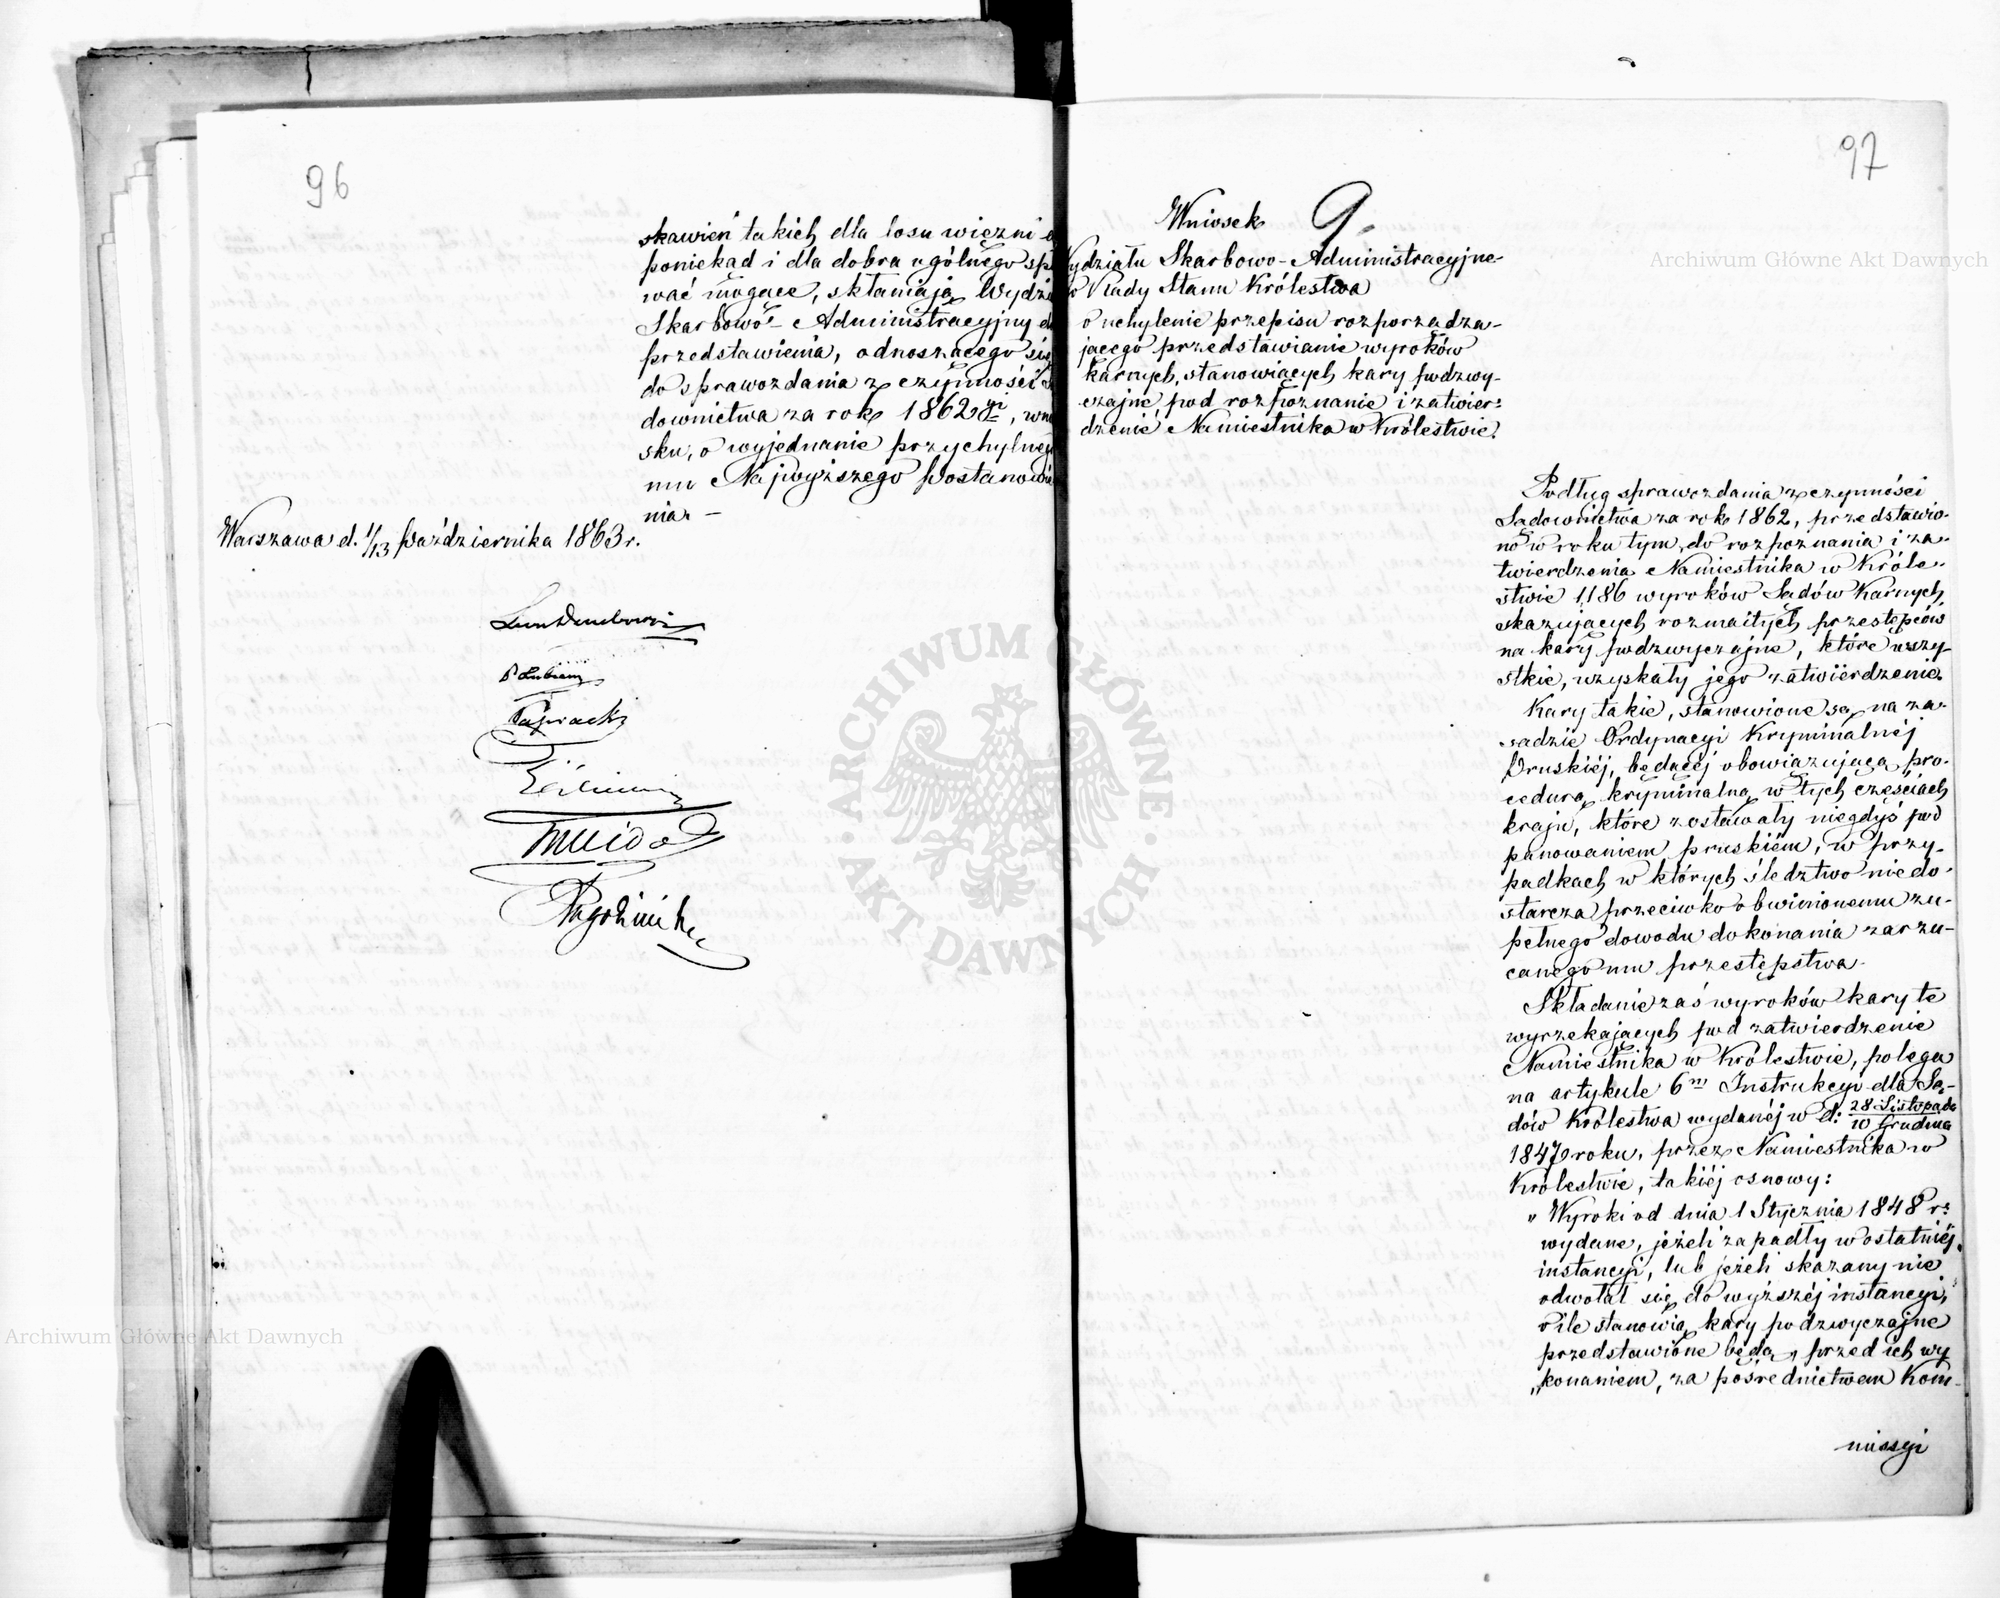 96
skawień takich dla losu więźni
poniekąd i dla dobra ogólnego
wać mogące, skłaniają
Skarbowo-Administracyjny
przedstawienia, odnoszącego się
do sprawozdania z czynności
downictwa za rok 1862gi,
sku, o wyjednanie przychylnego
mu Najwyższego Postanowie
nia. —
Warszawa d. 1/13 Października 1863 r.
97
Wniosek 9.
Wydziału Skarbowo-Administracyjne-
Rady Stanu Królestwa
o uchylenie przepisu rozporządza-
jącego przedstawianie wyroków
karnych, stanowiących kary podzwy-
czajne, pod rozpoznanie i zatwier-
dzenie Namiestnika w Królestwie.
Podług sprawozdania z czynności
Sądownictwa za rok 1862, przedstawio-
no w roku tym, do rozpoznania i za-
twierdzenia Namiestnika w Króle-
stwie 1186 wyroków Sądów Karnych,
skazujących rozmaitych przestępców
na kary podzwyczajne, które wszy-
stkie, uzyskały jego zatwierdzenie.
Kary takie, stanowione są na za-
sadzie Ordynacyi Kryminalnéj
Pruskiéj, będącéj obowiązującą pro-
cedurą kryminalną w tych częściach
kraju, które zostawały niegdyś pod
panowaniem pruskiém, w przy-
padkach w których śledztwo niedo-
starcza przeciwko obwinionemu zu-
pełnego dowodu dokonania zarzu-
canego mu przestępstwa.
Składanie zaś wyroków kary te
wyrzekających pod zatwierdzenie
Namiestnika w Królestwie, polega
na artykule 6m Instrukcyi dla Są-
dów Królestwa wydanéj w d. 28 Listopada
10 Grudnia
1847 roku, przez Namiestnika w
Królestwie, takiéj osnowy:
„Wyroki od dnia 1 Stycznia 1848 r.
wydane, jeżeli zapadły w ostatniéj
instancyi, lub jeżeli skazany nie
odwołał się do wyższéj instancyi,
o ile stanowią kary podzwyczajne
przedstawione będą, przed ich wy
„konaniem, za pośrednictwem Kom-
missyi
Archiwum Główne Akt Dawnych
Archiwum Główne Akt Dawnych
ARCHIWUM GŁÓWNE
AKT DAWNYCH